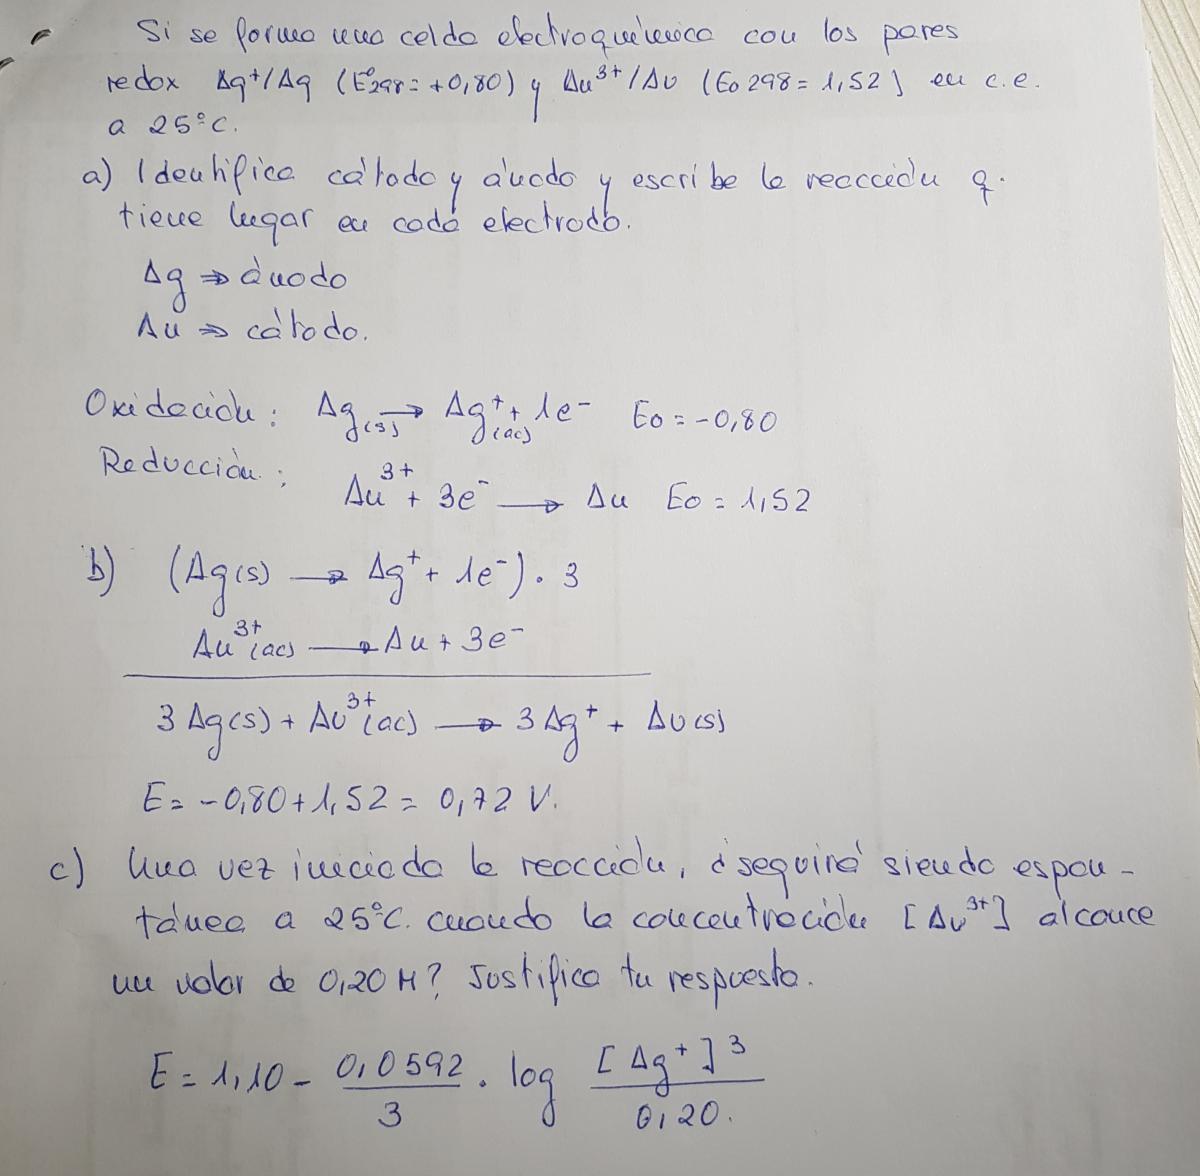 Si se forma una celda electroquímica con los pares
redox Ag⁺/Ag (E°298=+0,80) y Au³⁺/Au (Eo 298=1,52) en c.e.
a 25°C.
a) Identifica cátodo y ánodo y escribe la reacción q.
tiene lugar en cada electrodo.
Ag ⇒ ánodo
Au ⇒ cátodo.
Oxidación: Ag(s) → Ag⁺(ac) + 1e⁻ Eo = -0,80
Reducción: Au³⁺ + 3e⁻ → Au Eo = 1,52
b) (Ag(s) → Ag⁺ + 1e⁻) · 3
Au³⁺(ac) → Au + 3e⁻
3 Ag(s) + Au³⁺(ac) → 3 Ag⁺ + Au(s)
E = -0,80 + 1,52 = 0,72 V.
c) Una vez iniciada la reacción, ¿seguirá siendo espon-
tánea a 25°C. cuando la concentración [Au³⁺] alcance
un valor de 0,20 M? Justifica tu respuesta.
E = 1,10 - 0,0592/3 · log [Ag⁺]³/0,20.